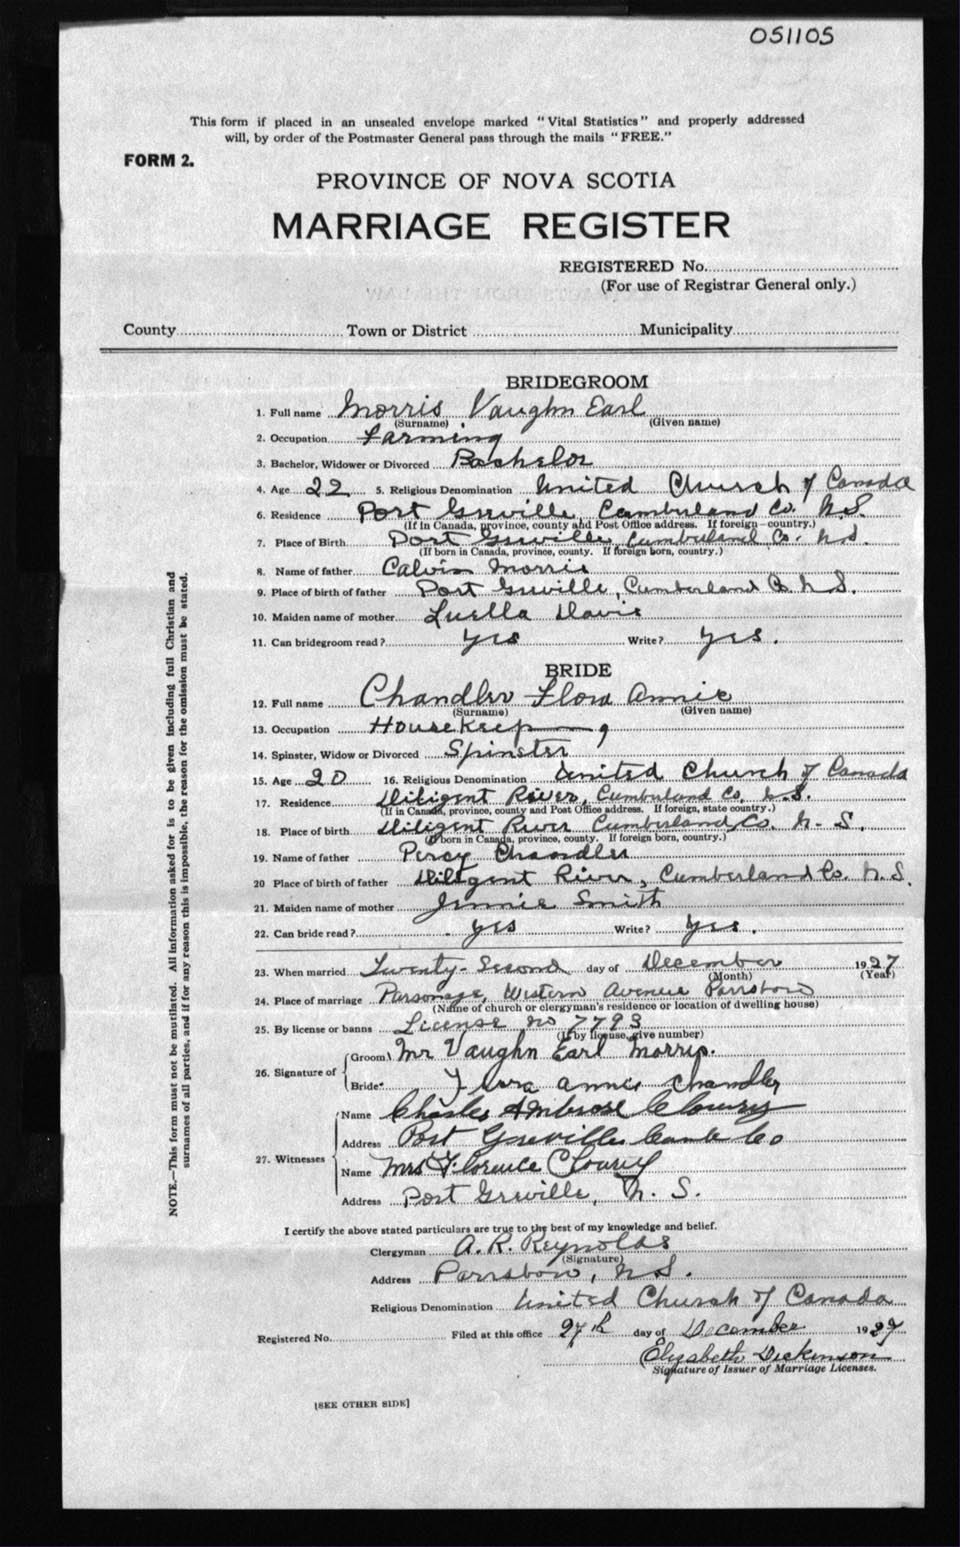 051105
This form if placed in an unsealed envelope marked "Vital Statistics" and properly addressed
will, by order of the Postmaster General pass through the mails "FREE."
FORM 2.
PROVINCE OF NOVA SCOTIA
MARRIAGE REGISTER
REGISTERED No.
(For use of Registrar General only.)
County Town or District Municipality
BRIDEGROOM
1. Full name Morris Vaughn Earl
(Surname) (Given name)
2. Occupation Farming
3. Bachelor, Widower or Divorced Bachelor
4. Age 22 5. Religious Denomination United Church of Canada
6. Residence Port Greville, Cumberland Co. N.S.
(If in Canada, province, county and Post Office address. If foreign—country.)
7. Place of Birth Port Greville, Cumberland Co. N.S.
(If born in Canada, province, county. If foreign born, country.)
8. Name of father Calvin Morris
9. Place of birth of father Port Greville, Cumberland Co. N.S.
10. Maiden name of mother Luella Davis
11. Can bridegroom read? yes Write? yes.
BRIDE
12. Full name Chandler Flora Annie
(Surname) (Given name)
13. Occupation Housekeep
14. Spinster, Widow or Divorced Spinster
15. Age 20 16. Religious Denomination United Church of Canada
17. Residence Diligent River, Cumberland Co. N.S.
(If in Canada, province, county and Post Office address. If foreign, state country.)
18. Place of birth Diligent River Cumberland Co. N.S.
(If born in Canada, province, county. If foreign born, country.)
19. Name of father Percy Chandler
20 Place of birth of father Diligent River, Cumberland Co. N.S.
21. Maiden name of mother Jennie Smith
22. Can bride read? yes Write? yes.
23. When married Twenty-Second day of December 1927
(Month) (Year)
24. Place of marriage Parsonage, Western Avenue Parrsboro
(Name of church or clergyman's residence or location of dwelling house)
25. By license or banns License no 7793
(If by license, give number)
26. Signature of
Groom Mr Vaughn Earl Morris.
Bride Flora Annie Chandler
27. Witnesses
Name Charles Ambrose Clowrey
Address Port Greville Cumb Co
Name Mrs Florence Clowrey
Address Port Greville, N.S.
I certify the above stated particulars are true to the best of my knowledge and belief.
Clergyman A. R. Reynolds
(Signature)
Address Parrsboro, N.S.
Religious Denomination United Church of Canada
Registered No. Filed at this office 27th day of December 1927
Elizabeth Dickinson
Signature of Issuer of Marriage Licenses.
[SEE OTHER SIDE]
NOTE.—This form must not be mutilated. All information asked for is to be given including full Christian and
surnames of all parties, and if for any reason this is impossible, the reason for the omission must be stated.